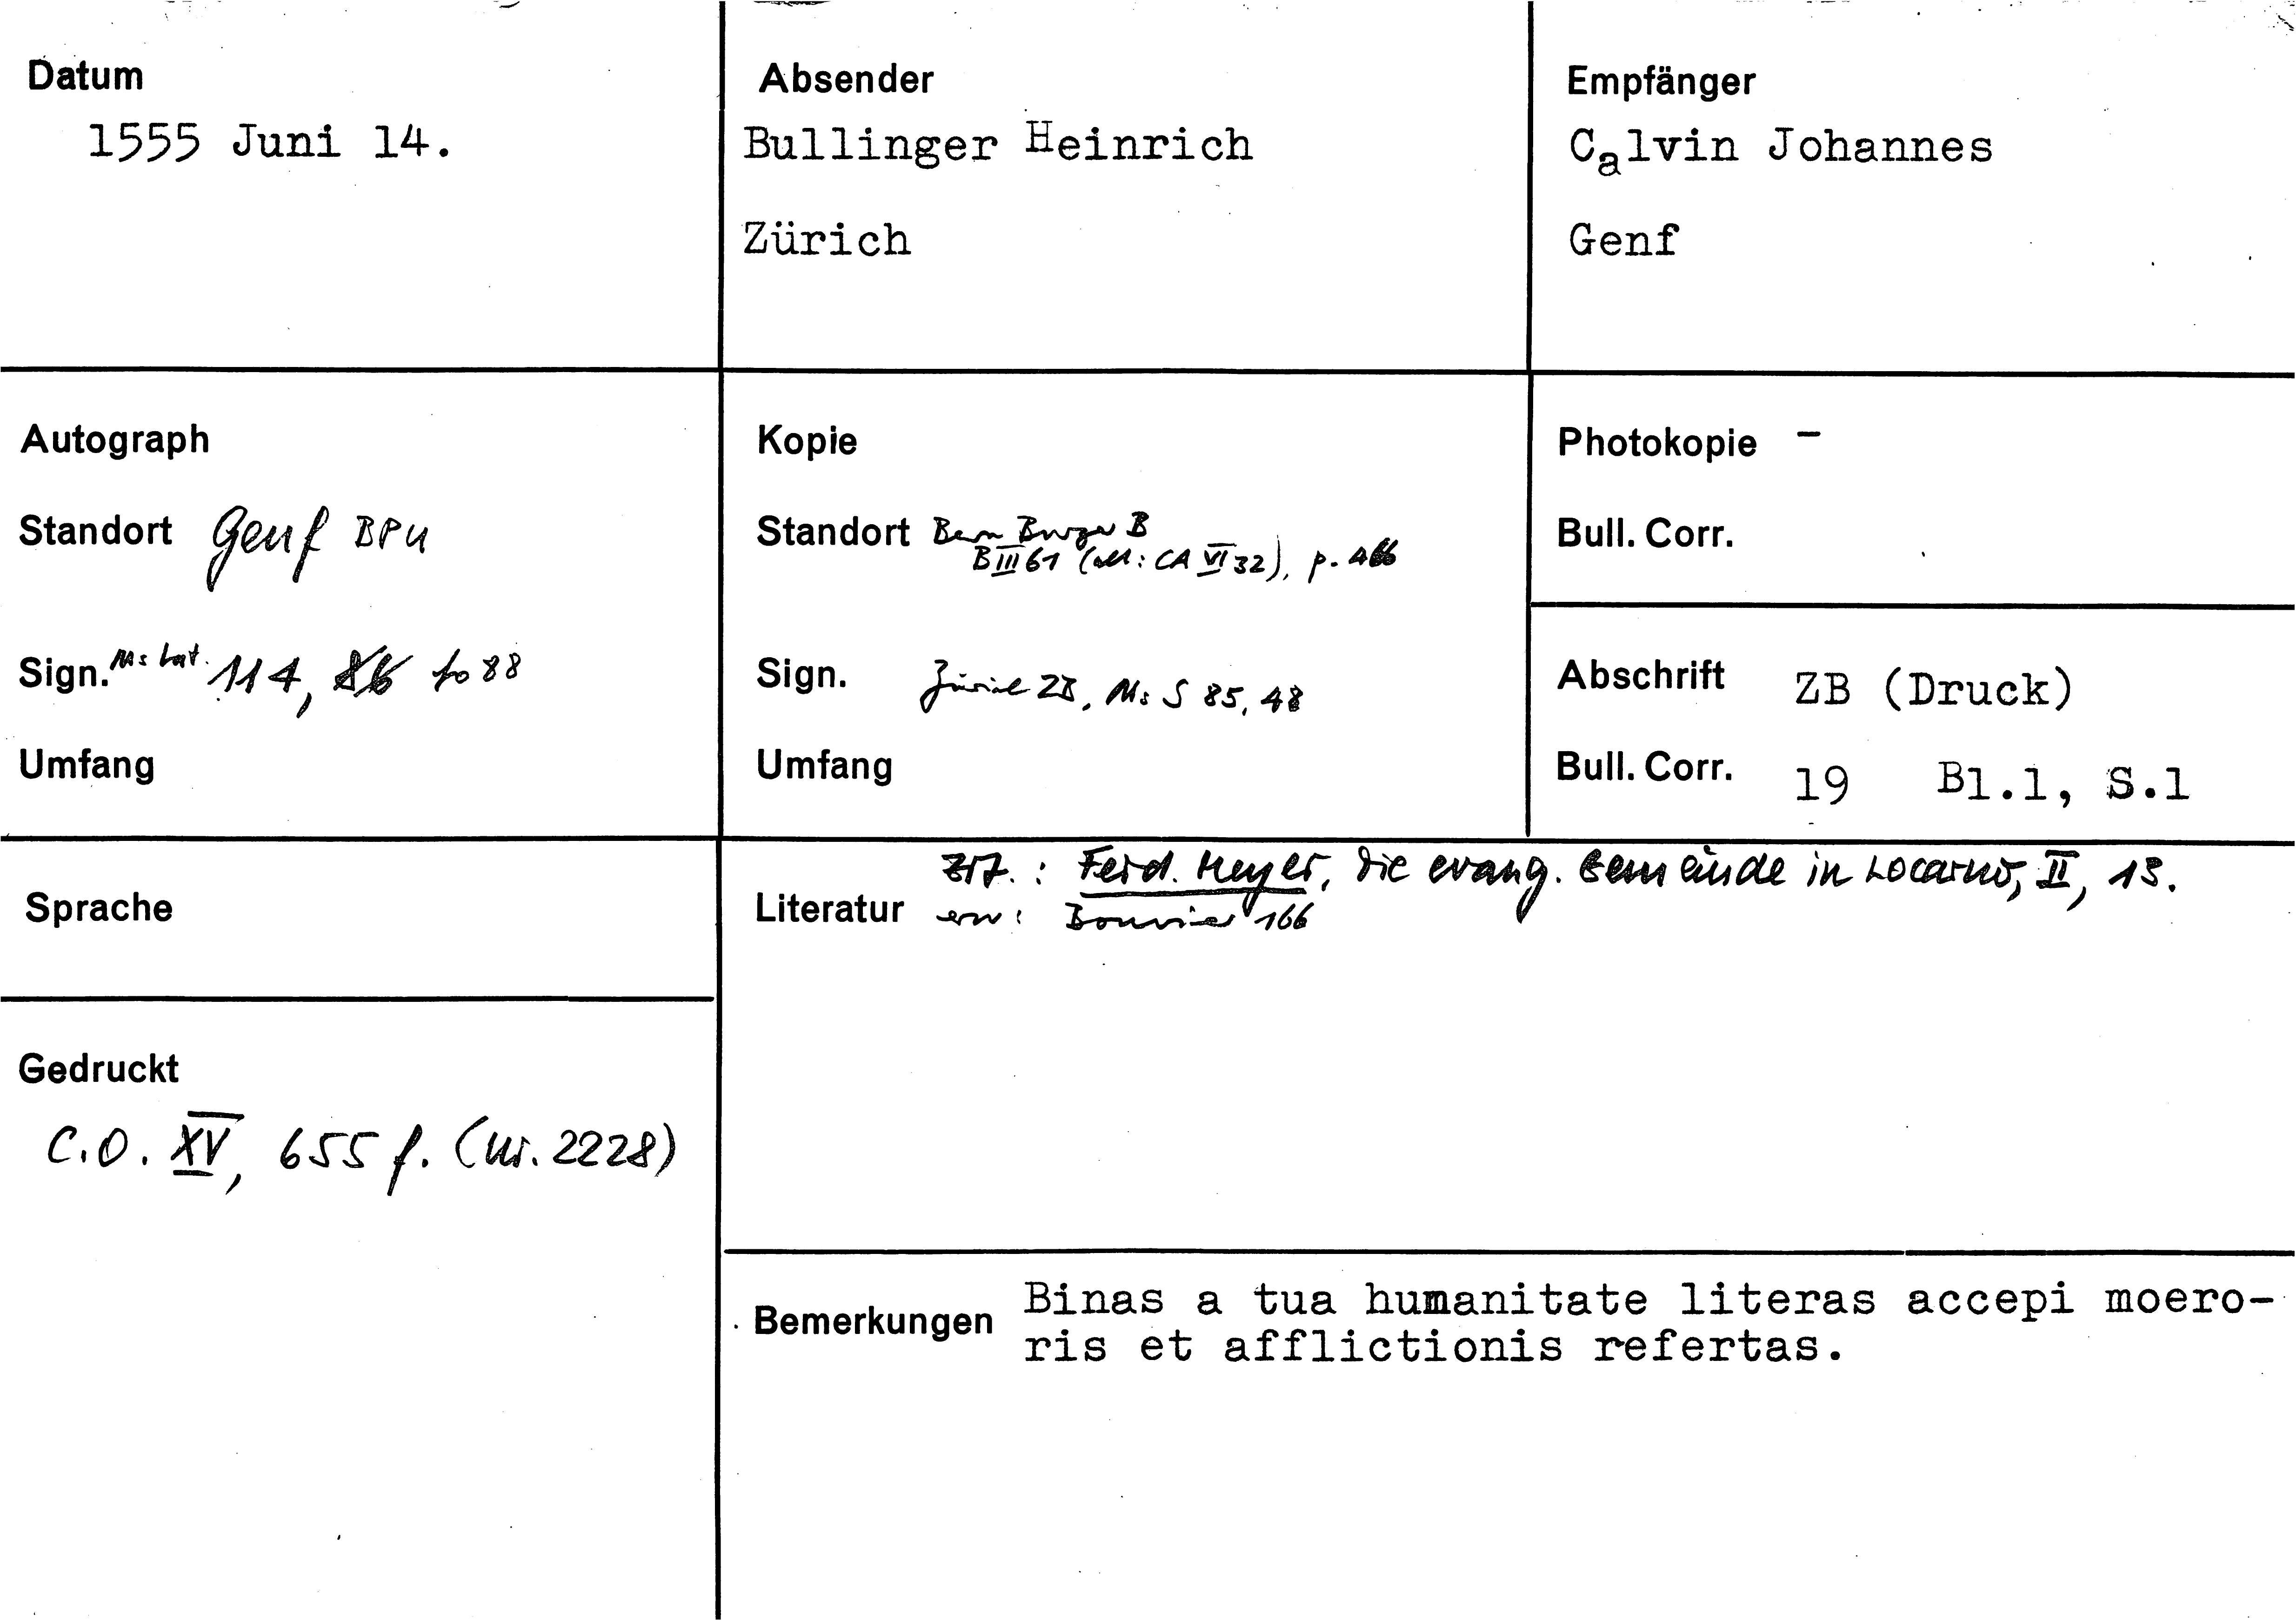 Datum
1555 Juni 14.
Absender
Bullinger Heinrich
Zürich
Empfänger
Calvin Johannes
Genf
Autograph
Standort Genf BPU
Sign. Ms lat. 114, 86 fo 88
Umfang
Kopie
Standort Bern Burger B
B III 61 (alt: CA VI 32), p.
Sign. Zürich ZB, Ms S 85, 48
Umfang
Photokopie -
Bull. Corr.
Abschrift ZB (Druck)
Bull. Corr. 19 Bl.1, S.1
Sprache
Gedruckt
C.O. XV, 655 f. (Nr. 2228)
Zit.: Ferd. Meyer, Die evang. Gemeinde in Locarno, II, 13.
Literatur erw: Bouvier 166
Bemerkungen Binas a tua humanitate literas accepi moero-
ris et afflictionis refertas.